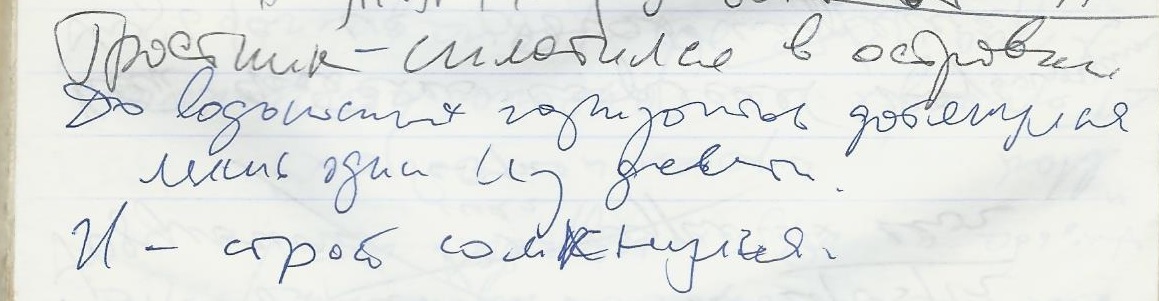 Тростник – сплотился в островки
До водоносных горизонтов дотянулся
лишь один из девяти.
И – строй сомкнулся.